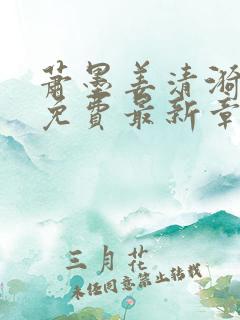 萧墨姜清漪
免费最新章
三月花
未经同意禁止转载